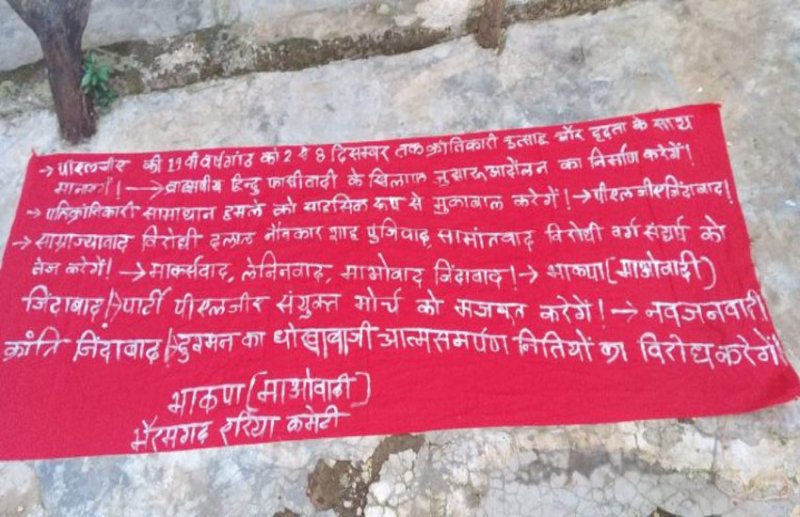 → पीएलजीए की 19 वी वर्षगांठ को 2 से 8 दिसम्बर तक क्रांतिकारी उत्साह और दृढ़ता के साथ
मानायेंगे! → हिन्दु फासीवादी के खिलाफ जुझारू आंदोलन का निर्माण करेगें!
→ प्रतिक्रांतिकारी सामाधान हमले को साहसिक रूप से मुकाबाल करेगें! → पीएलजीए जिंदाबाद!
→ साम्राज्यावाद विरोधी दलाल नौवकार शाह पुंजिवाद, सामांतवाद विरोधी वर्ग संघर्ष को
तेज करेगें! → मार्क्सवाद, लेनिनवाद, माओवाद जिंदावाद! → भाकपा (माओवादी)
जिंदाबाद! → पार्टी पीएलजीए संयुक्त मोर्च को मजबुत करेगें! → नवजनवादी
क्रांति जिंदाबाद! → दुश्मन का धोखाबाजी आत्मसमर्पण नितियों का विरोध करेगें!
भाकपा (माओवादी)
भैरमगढ़ एरिया कमेटी